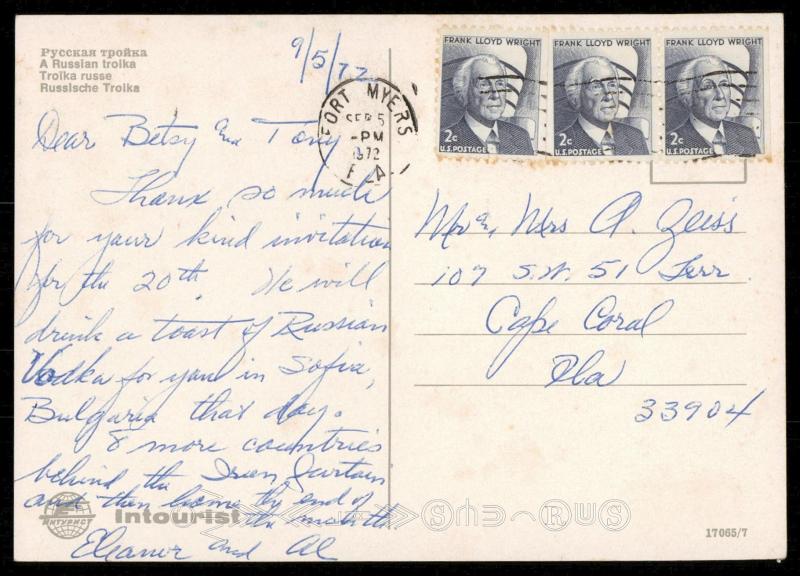 Русская тройка
A Russian troika
Troïka russe
Russische Troika
9/5/72
FORT MYERS
SEP 5
-PM
1972
FLA
FRANK LLOYD WRIGHT FRANK LLOYD WRIGHT FRANK LLOYD WRIGHT
2c 2c 2c
U.S. POSTAGE U.S. POSTAGE U.S. POSTAGE
Dear Betsy and Tony
Thanx so much
for your kind invitation
for the 20th. We will
drink a toast of Russian
Vodka for you in Sofia,
Bulgaria that day.
8 more countries
behind the Iron Curtain
and then home by end of
the month
Eleanor and Al
Mr &, Mrs A. Zeiss
107 S.W. 51 Terr.
Cape Coral
Fla
33904
ИНТУРИСТ
Intourist
RUS
17065/7